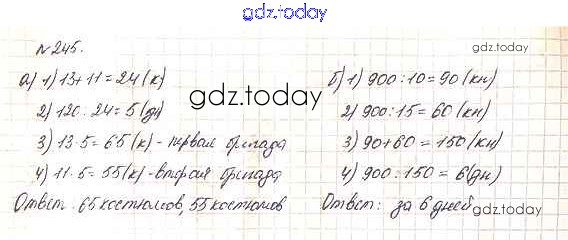 gdz.today
№ 245.
gdz.today
а) 1) 13+11=24 (к)
2) 120:24=5 (дн)
gdz.today
3) 13·5=65 (к) - первая бригада
4) 11·5=55 (к) - вторая бригада
Ответ: 65 костюмов, 55 костюмов
б) 1) 900:10=90 (кн)
2) 900:15=60 (кн)
3) 90+60=150 (кн)
4) 900:150=6 (дн)
Ответ: за 6 дней
gdz.today